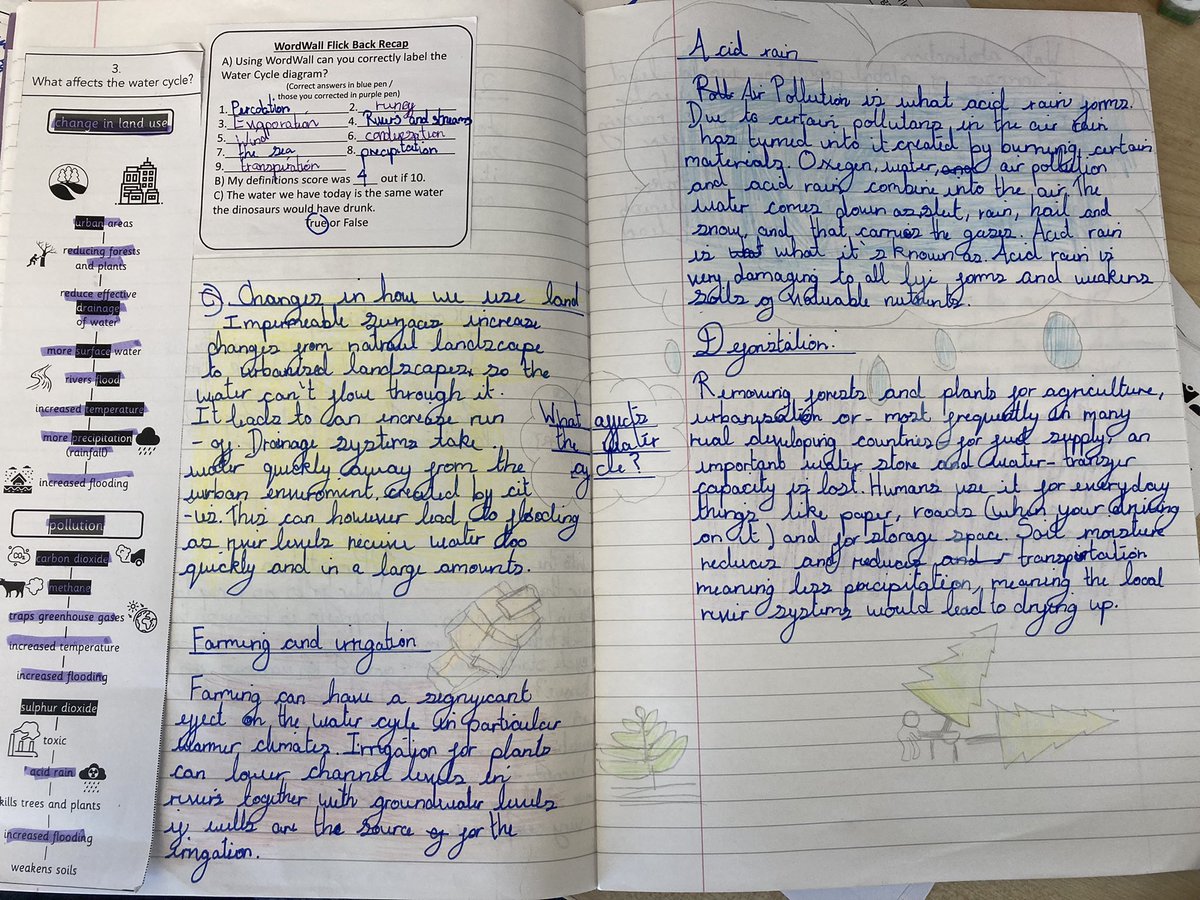 3.
What affects the water cycle?
change in land use
urban areas
reducing forests
and plants
reduce effective
drainage
of water
more surface water
rivers flood
increased temperature
more precipitation
(rainfall)
increased flooding
pollution
CO2
carbon dioxide
methane
traps greenhouse gases
increased temperature
increased flooding
sulphur dioxide
toxic
acid rain
kills trees and plants
increased flooding
weakens soils
WordWall Flick Back Recap
A) Using WordWall can you correctly label the
Water Cycle diagram?
(Correct answers in blue pen /
those you corrected in purple pen)
1. Percolation 2.
3. Evaporation 4. Rivers and streams
5. Wind 6. condensation
7. the sea 8. precipitation
9. transpiration
B) My definitions score was 4 out if 10.
C) The water we have today is the same water
the dinosaurs would have drunk.
True or False
Changes in how we use land
Impurmeable surfaces increase
changes from natraul landscape
to urbanised landscapes, so the
water can't flow through it.
It leads to an increase run
-off. Drainage systems take
water quickly away from the
urban enviroment, created by cit
-ies. This can however lead to flooding
as river levels receive water too
quickly and in a large amounts.
Farming and irrigation
Farming can have a significant
effect on the water cycle in particular
warmer climates. Irrigation for plants
can lower channel levels in
rivers together with groundwater levels
if wells are the source of for the
irrigation.
What affects
the water
cycle?
Acid rain
Poll Air Pollution is what acid rain forms.
Due to certain pollutans in the air rain
has turned into it created by burning certain
materials. Oxegen, water, and air pollution
and acid rain combine into the air. The
water comes down as slut, rain, hail and
snow, and that carries the gases. Acid rain
is what it's known as. Acid rain is
very damaging to all forms and weakens
soils of valuable nutrients.
Deforstation.
Removing forests and plants for agriculture,
urbanisation or most frequetly in many
rual developing countries for fuel supply, an
important water store and water-transfer
capacity is lost. Humans use it for everyday
things like paper, roads (when your driving
on it) and for storage space. Soil moisture
reduces and reduces and transportation
meaning less precipitation, meaning the local
river systems would lead to drying up.